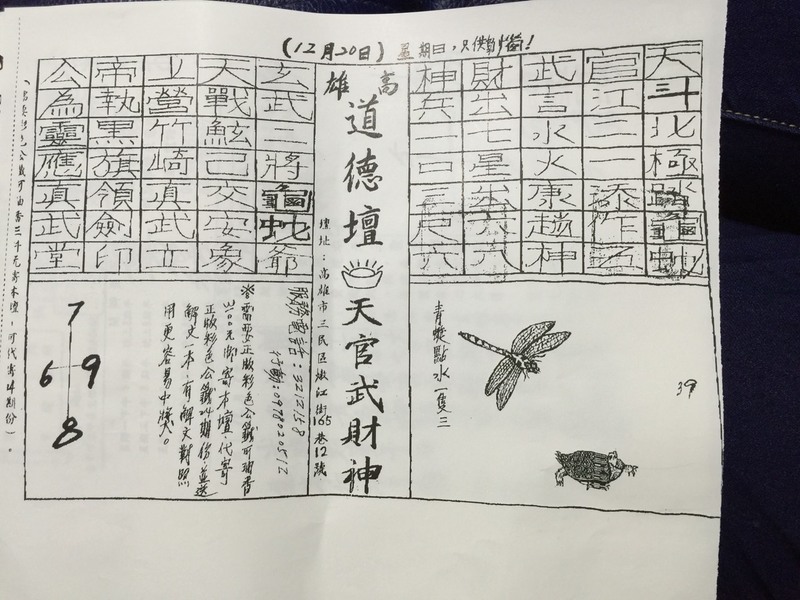 (12月20日) 星期日，只供參考！
天斗北極踏龜蛇
官江二一添作五
武言水火康趙神
財出七星
神兵一口三尺六
高雄
道德壇
天官武財神
壇址：高雄市三民區嫩江街165巷12號
玄武二將龜蛇爺
天戰鮌己交安象
上營竹崎真武立
帝執黑旗領劍印
公為靈應真武堂
青蜓點水一隻三
39
服務電話：3212158
行動：0978020512
※需要正版彩色公籤可油香
元即寄本壇，代寄
正版彩色公籤叫期份並送
解文一本，有解文對照
用更容易中獎。
7
6 9
8
彩色公籤可油香三千元寄本壇，可代寄叫期份）。